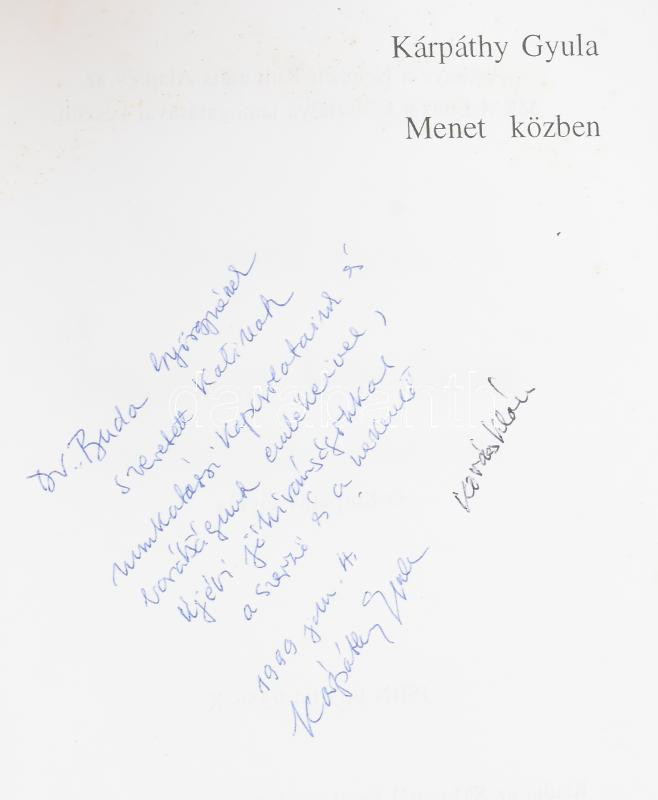 Kárpáthy Gyula
Menet közben
Dr. Buda Györgynének
szeretett Katinak
munkatársi kapcsolataink és
barátságunk emlékeivel,
újévi jókívánságokkal
a szerző és a
1999 jan. 4.
Kárpáthy Gyula
darabanth